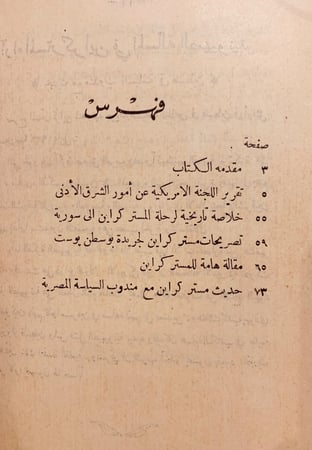 فهرس
صفحة
٣ مقدمه الكتاب
٥ تقرير اللجنة الامريكية عن أمور الشرق الأدنى
٥٥ خلاصة تاريخية لرحلة المستر كراين الى سورية
٥٩ تصريحات مستر كراين لجريدة بوسطن بوست
٦٥ مقالة هامة للمستر كراين
٧٣ حديث مستر كراين مع مندوب السياسة المصرية